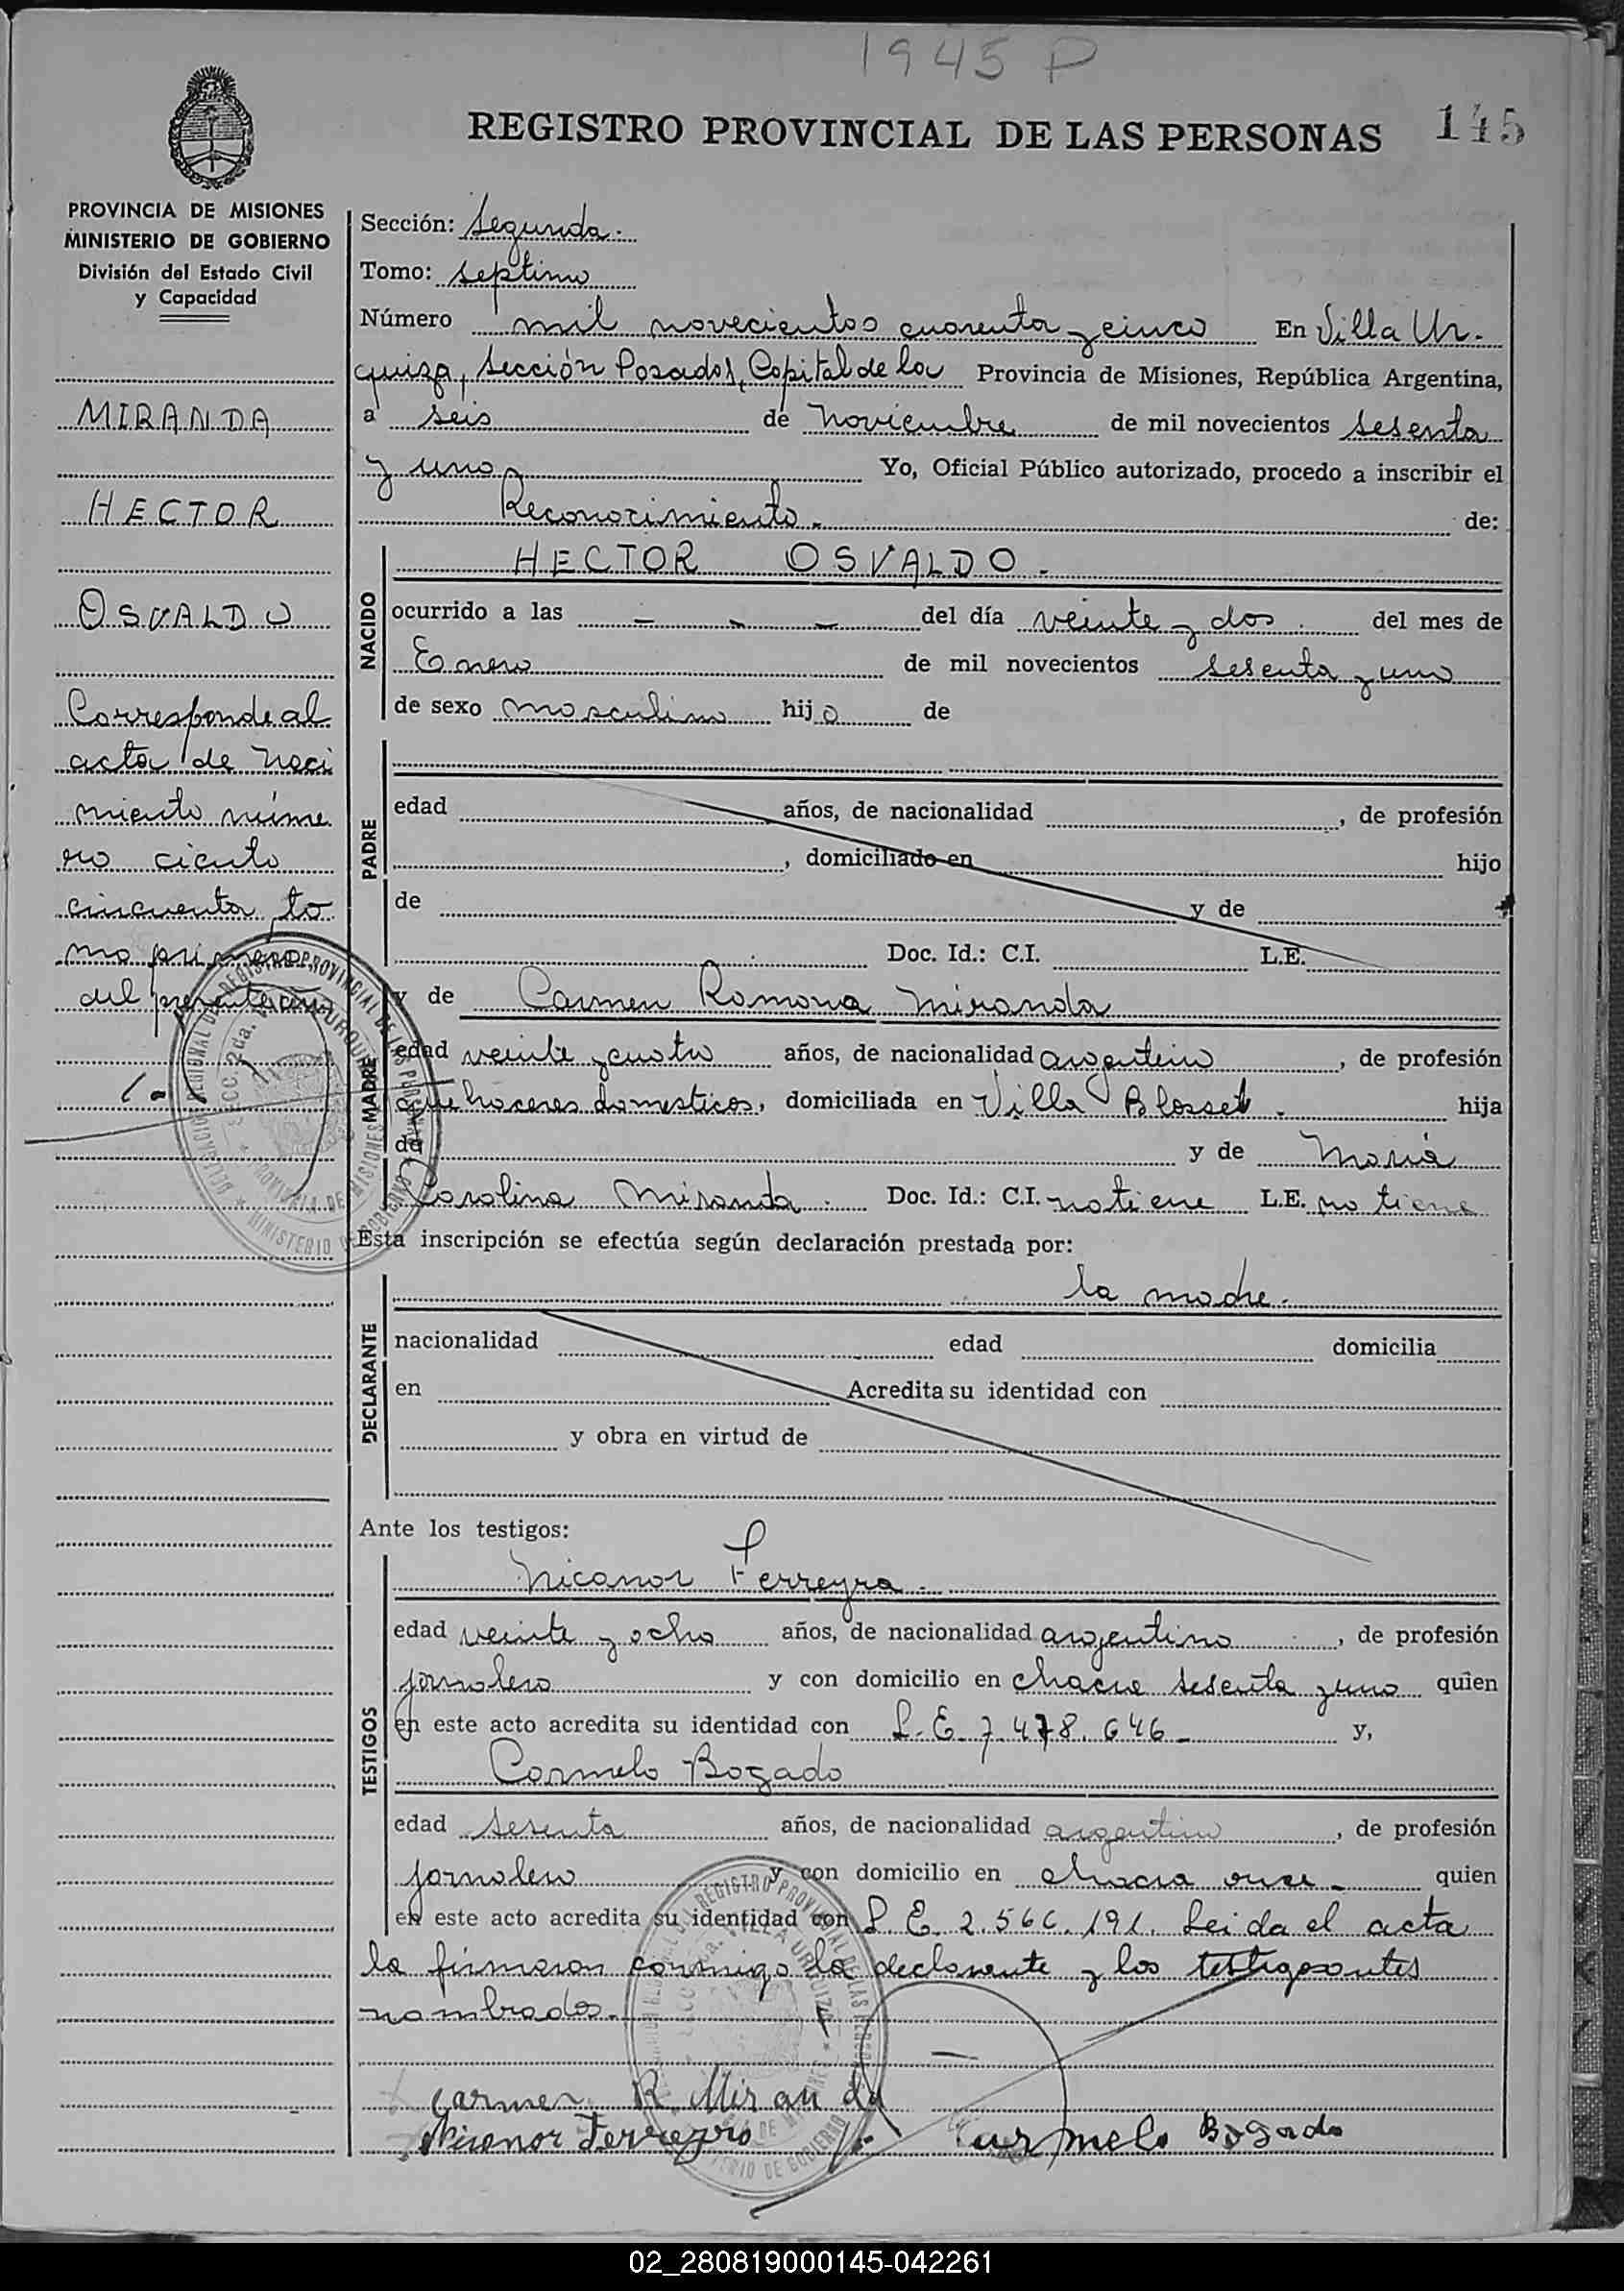 1945 P
REGISTRO PROVINCIAL DE LAS PERSONAS 145
PROVINCIA DE MISIONES
MINISTERIO DE GOBIERNO
División del Estado Civil
y Capacidad
MIRANDA
HECTOR
OSVALDO
Corresponde al
acta de naci
miento núme
ro ciento
cincuenta to
mo primero
del presente año
Sección: Segunda.
Tomo: septimo
Número mil novecientos cuarenta y cinco En Villa Ur-
quiza, Sección Posadas, Capital de la Provincia de Misiones, República Argentina,
a seis de Noviembre de mil novecientos sesenta
y uno Yo, Oficial Público autorizado, procedo a inscribir el
Reconocimiento. de:
HECTOR OSVALDO.
NACIDO
ocurrido a las - - - del día veinte y dos. del mes de
Enero de mil novecientos sesenta y uno
de sexo masculino hijo de
PADRE
edad años, de nacionalidad , de profesión
, domiciliado en hijo
de y de
Doc. Id.: C.I. L.E.
y de Carmen Ramona Miranda
MADRE
edad veinte y cuatro años, de nacionalidad argentina, de profesión
quehaceres domesticos, domiciliada en Villa Blosset. hija
de y de Maria
Carolina Miranda. Doc. Id.: C.I. no tiene L.E. no tiene
Esta inscripción se efectúa según declaración prestada por:
la madre.
DECLARANTE
nacionalidad edad domicilia
en Acredita su identidad con
y obra en virtud de
Ante los testigos:
TESTIGOS
Nicanor Ferreyra.
edad veinte y ocho años, de nacionalidad argentino, de profesión
jornalero y con domicilio en chacra sesenta y uno quien
en este acto acredita su identidad con L.E. 7.478.646- y,
Carmelo Bogado
edad sesenta años, de nacionalidad argentino, de profesión
jornalero y con domicilio en chacra once- quien
en este acto acredita su identidad con L.E. 2.566.191. Leida el acta
la firmaron conmigo la declarante y los testigos antes
nombrados.
Carmen R Miranda
Nicanor Ferreyra Carmelo Bogado
02_280819000145-042261